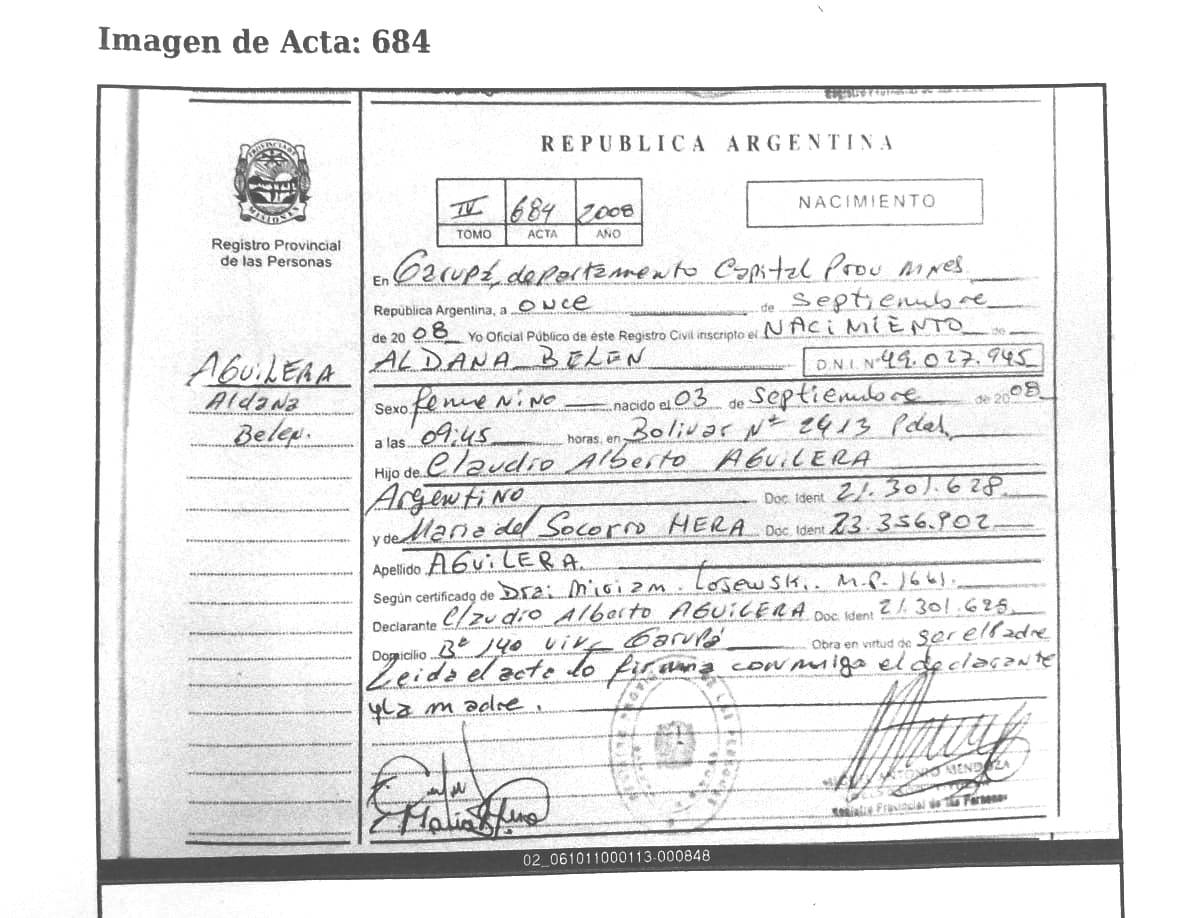 Imagen de Acta: 684
PROVINCIA DE
MISIONES
Registro Provincial
de las Personas
REPUBLICA ARGENTINA
IV 684 2008
TOMO ACTA AÑO
NACIMIENTO
En Garupá, departamento Capital Prov Mnes
República Argentina, a once de septiembre
de 20 08 Yo Oficial Público de éste Registro Civil inscripto el NACIMIENTO de
ALDANA BELEN D.N.I. Nº 49.027.945
AGUILERA
Aldana
Belen.
Sexo femenino nacido el 03 de septiembre de 20 08
a las 09:45 horas, en Bolivar Nº 2413 Pdas,
Hijo de Claudio Alberto AGUILERA
Argentino Doc. Ident 21.301.628
y de Maria del Socorro MERA Doc. Ident 23.356.902
Apellido AGUILERA.
Según certificado de Dra: Miriam M.P. 1661.
Declarante Claudio Alberto AGUILERA Doc. Ident 21.301.625
Domicilio Bº 140 viv. Garupá Obra en virtud de ser el Padre
Leida el acta lo firma conmigo el declarante
y la madre.
ANTONIO MENDOZA
Registro Provincial de las Personas
02_061011000113-000848